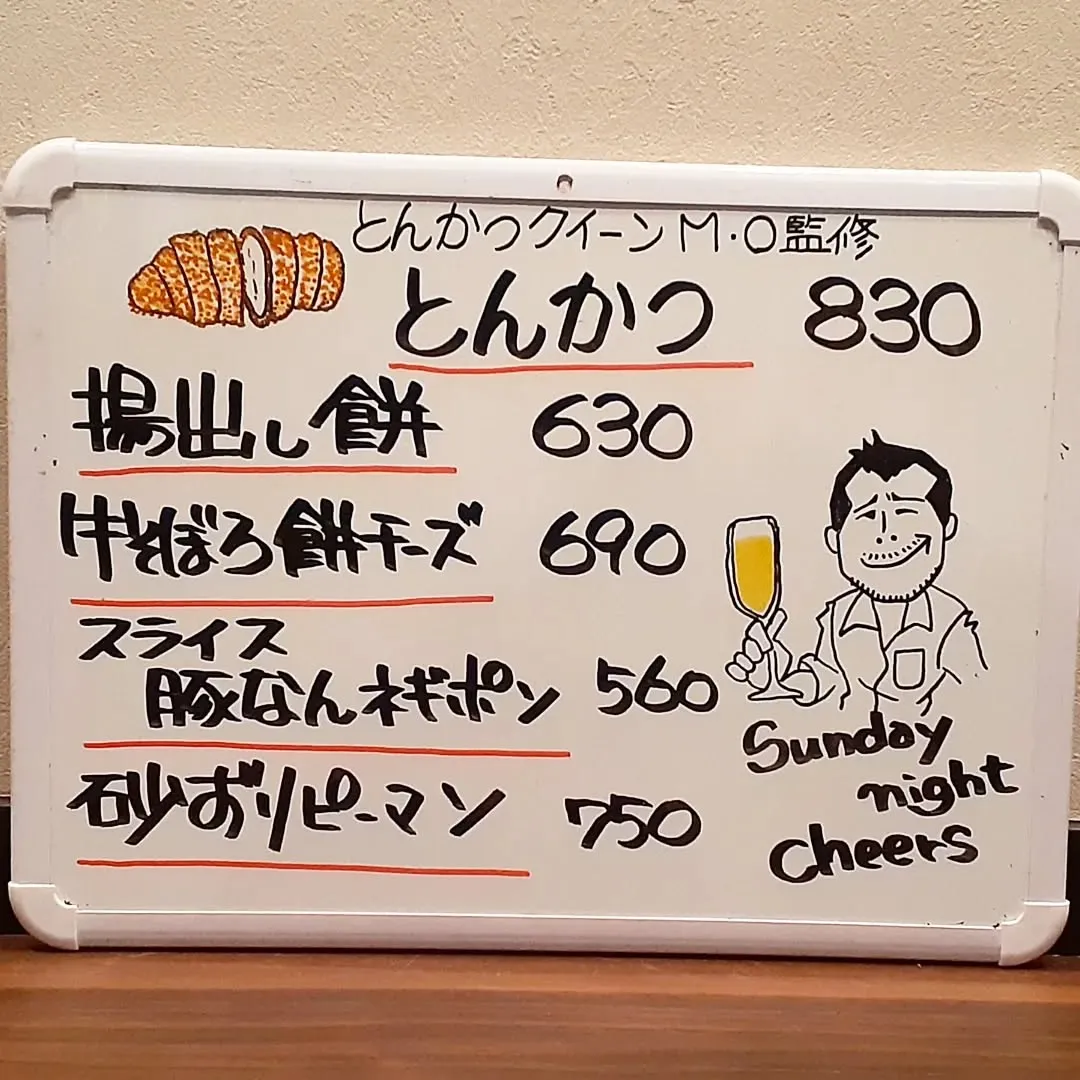 とんかつクイーンM・O監修
とんかつ 830
揚出し餅 630
牛そぼろ餅チーズ 690
スライス
豚なんネギポン 560
砂ずりピーマン 750
Sunday
night
cheers